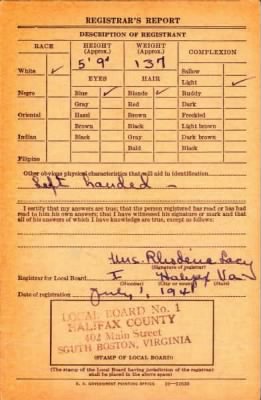 REGISTRAR'S REPORT
DESCRIPTION OF REGISTRANT
RACE HEIGHT (Approx.) WEIGHT (Approx.) COMPLEXION
5' 9" 137
White ✓ Sallow
EYES HAIR Light ✓
Negro Blue ✓ Blonde ✓ Ruddy
Gray Red Dark
Oriental Hazel Brown Freckled
Brown Black Light brown
Indian Black Gray Dark brown
Bald Black
Filipino
Other obvious physical characteristics that will aid in identification
Left handed -
I certify that my answers are true; that the person registered has read or has had
read to him his own answers; that I have witnessed his signature or mark and that
all of his answers of which I have knowledge are true, except as follows:
Mrs. Rhodena Lacy
(Signature of registrar)
Registrar for Local Board I Halifax Va
(Number) (City or county) (State)
Date of registration July 1, 1941
LOCAL BOARD No. 1
HALIFAX COUNTY
402 Main Street
SOUTH BOSTON, VIRGINIA
(STAMP OF LOCAL BOARD)
(The stamp of the Local Board having jurisdiction of the registrant
shall be placed in the above space)
U. S. GOVERNMENT PRINTING OFFICE